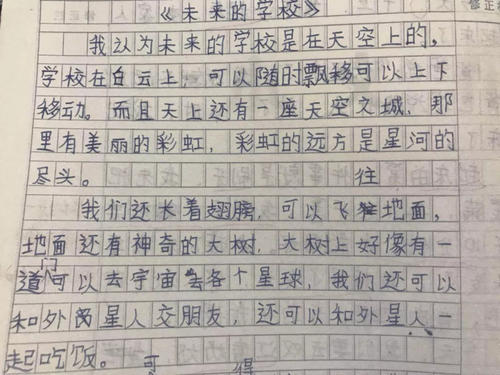 《未来的学校》
我认为未来的学校是在天空上的，
学校在白云上，可以随时飘移可以上下
移动。而且天上还有一座天空文城，那
里有美丽的彩虹，彩虹的远方是星河的
尽头。
往
我们还长着翅膀，可以飞地面，
地面还有神奇的大树，大树上好像有一
门
道可以去宇宙去各个星球，我们还可以
和外星人交朋友，还可以和外星人一
起吃饭。
可 得